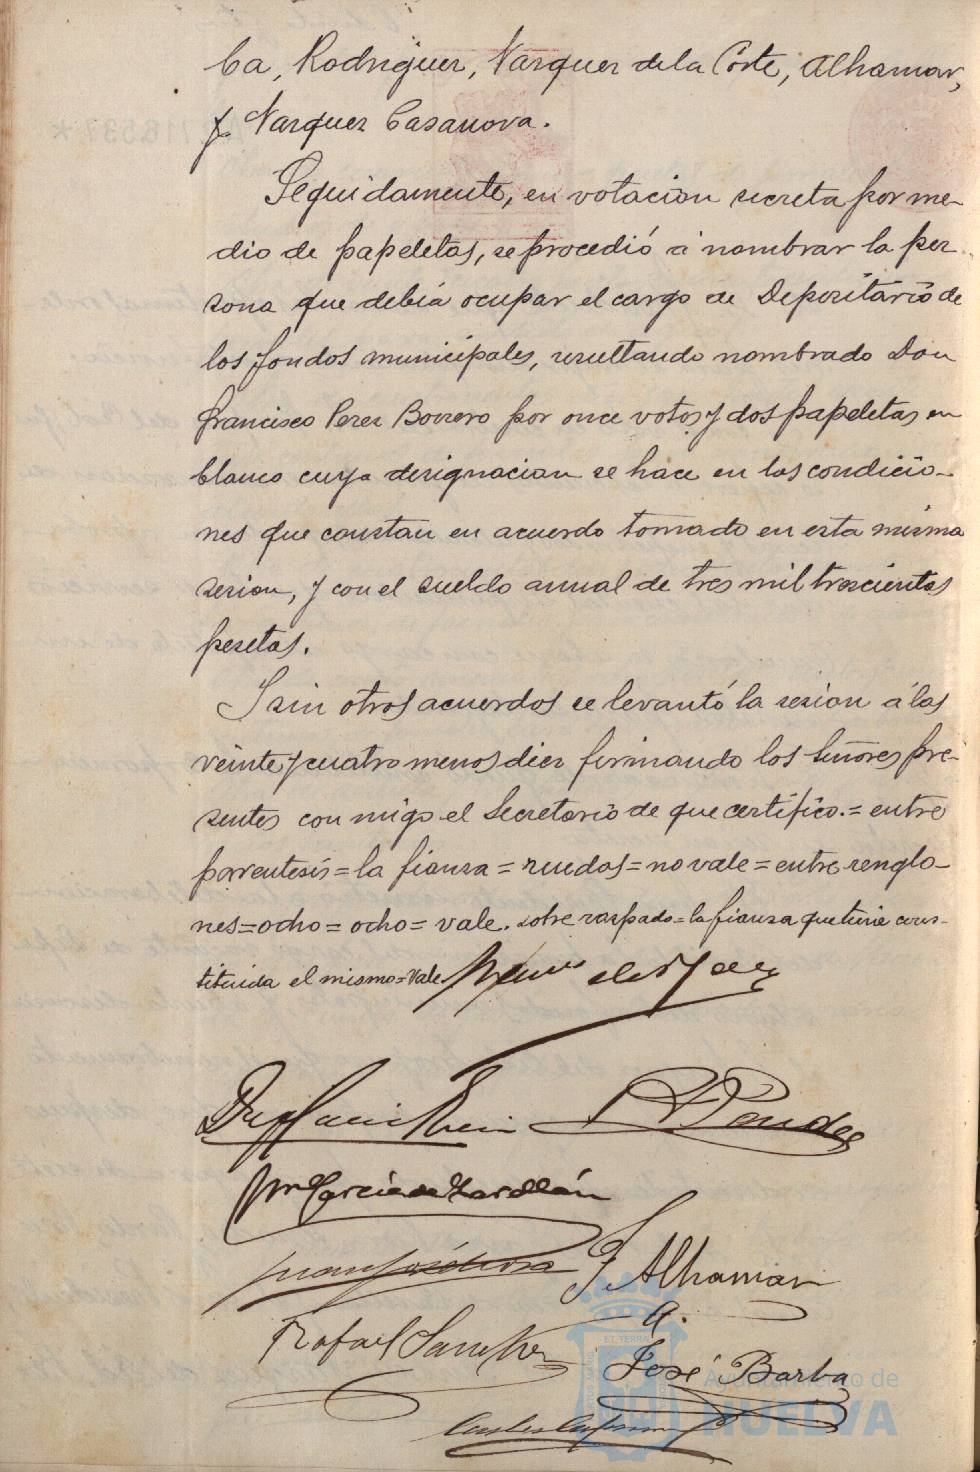 ba, Rodriguez, Vazquez de la Corte, Alhamar,
y Vazquez Casanova.
Seguidamente, en votacion secreta por me-
dio de papeletas, se procedió á nombrar la per-
sona que debia ocupar el cargo de Depositario de
los fondos municipales, resultando nombrado Don
Francisco Perez Borrero por once votos y dos papeletas en
blanco cuya designacion se hace en las condicio-
nes que constan en acuerdo tomado en esta misma
sesion, y con el sueldo anual de tres mil trescientas
pesetas.
Y sin otros acuerdos se levantó la sesion á las
veinte y cuatro menos diez firmando los Señores pre-
sentes con migo el Secretario de que certifico. = entre
parentesis = la fianza = ruedas = no vale = entre renglo-
nes = ocho = ocho = vale. sobre raspado = la fianza que tenia cons-
tituida el mismo = Vale
Juan José
J. Alhamar
Rafael Sanchez
A.
José Barba
Ayuntamiento de
HUELVA